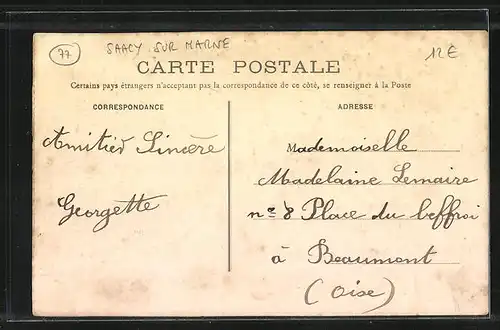 77 SAACY SUR MARNE 12€
CARTE POSTALE
Certains pays étrangers n'acceptant pas la correspondance de ce côté, se renseigner à la Poste
CORRESPONDANCE
Amitiés Sincère
Georgette
ADRESSE
Mademoiselle
Madelaine Lemaire
n° 8 Place du beffroi
à Beaumont
(Oise)